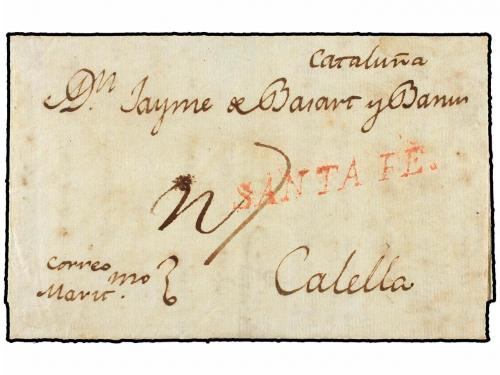 Cataluña
Dn. Jayme de Basart y Banus
SANTA FÈ.
Correo
Maritmo.
Calella